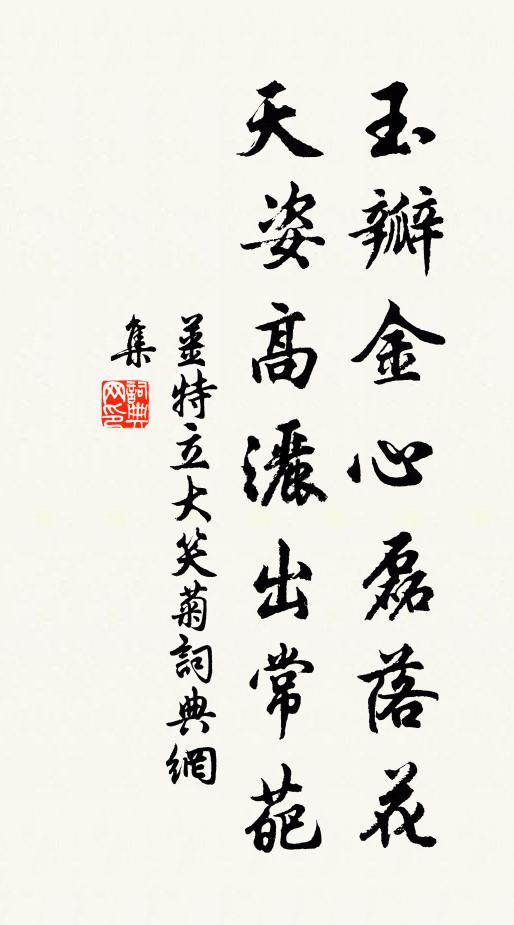 玉瓣金心磊落花
天姿高灑出常葩
薑特立大笑菊詞典網
集
詞典
网印